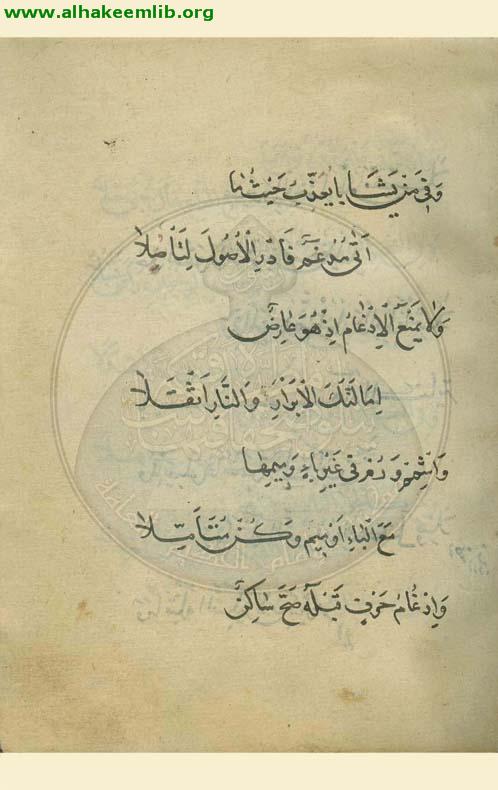 www.alhakeemlib.org
وَفِي مَنْ يَشَا بَا يُعَذِّبُ حَيْثُمَا
أَتَى مُدْغَمٌ فَادْرِ الْأُصُولَ لِتَأْصُلَا
وَلَا يَمْنَعُ الْإِدْغَامُ إِذْ هُوَ عَارِضٌ
إِمَالَةَ كَالْأَبْرَارِ وَالنَّارِ أَثْقَلَا
وَأَشْمِمْ وَرُمْ فِي غَيْرِ بَاءٍ وَمِيمِهَا
مَعَ الْبَاءِ أَوْ مِيمٍ وَكُنْ مُتَأَمِّلَا
وَإِدْغَامُ حَرْفٍ قَبْلَهُ صَحَّ سَاكِنٌ